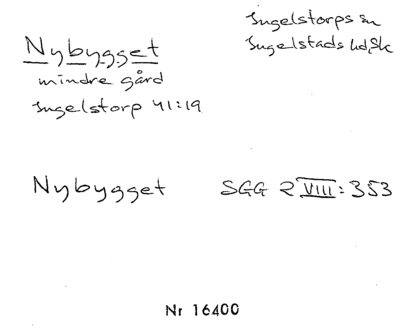 Ingelstorps sn
Ingelstads hd, Sk
Nybygget
mindre gård
Ingelstorp 41:19
Nybygget SGG 2 VIII: 353
Nr 16400